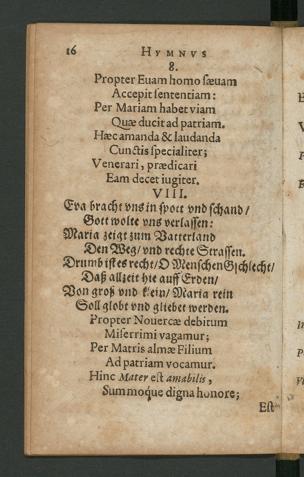 16 HYMNVS
8.
Propter Euam homo sævam
Accepit sententiam:
Per Mariam habet viam
Quæ ducit ad patriam.
Hæc amanda & laudanda
Cunctis specialiter;
Venerari, prædicari
Eam decet iugiter.
VIII.
Eva bracht vns in spott vnd schand/
Gott wolte vns verlassen:
Maria zeigt zum Vatterland
Den Weg/ vnd rechte Strassen.
Drumb ist es recht/ O Menschen Gschlecht/
Daß allzeit hie auff Erden/
Von groß vnd klein/ Maria rein
Soll globt vnd gliebet werden.
Propter Novercæ debitum
Miserrimi vagamur;
Per Matris almæ Filium
Ad patriam vocamur.
Hinc Mater est amabilis,
Summoque digna honore;
Est